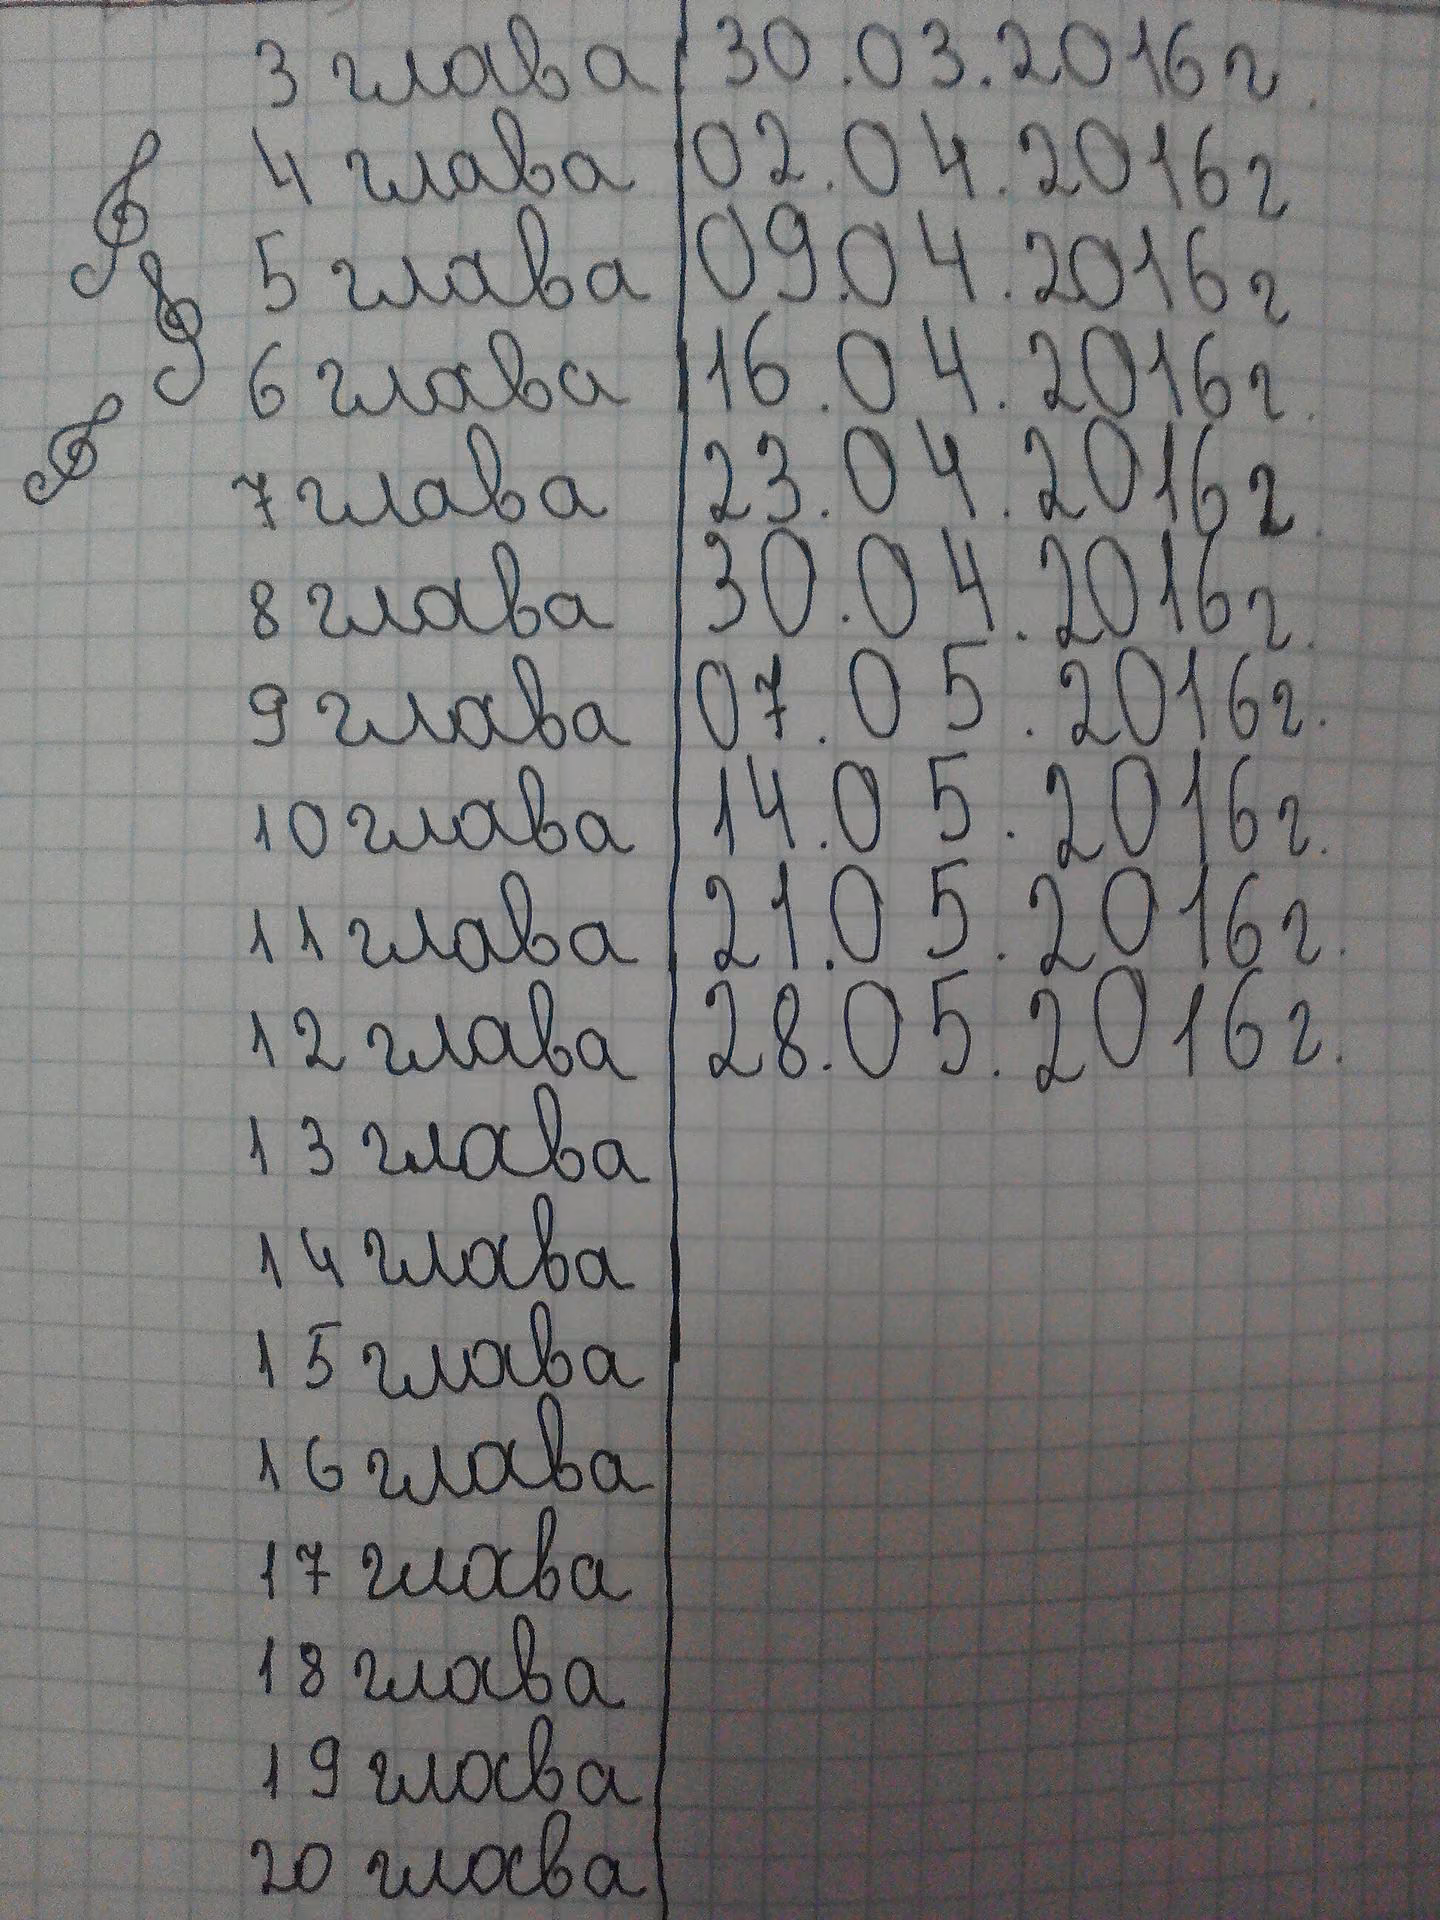 3 глава 30.03.2016г.
4 глава 02.04.2016г
5 глава 09.04.2016г
6 глава 16.04.2016г.
7 глава 23.04.2016г.
8 глава 30.04.2016г.
9 глава 07.05.2016г.
10 глава 14.05.2016г.
11 глава 21.05.2016г.
12 глава 28.05.2016г.
13 глава
14 глава
15 глава
16 глава
17 глава
18 глава
19 глава
20 глава